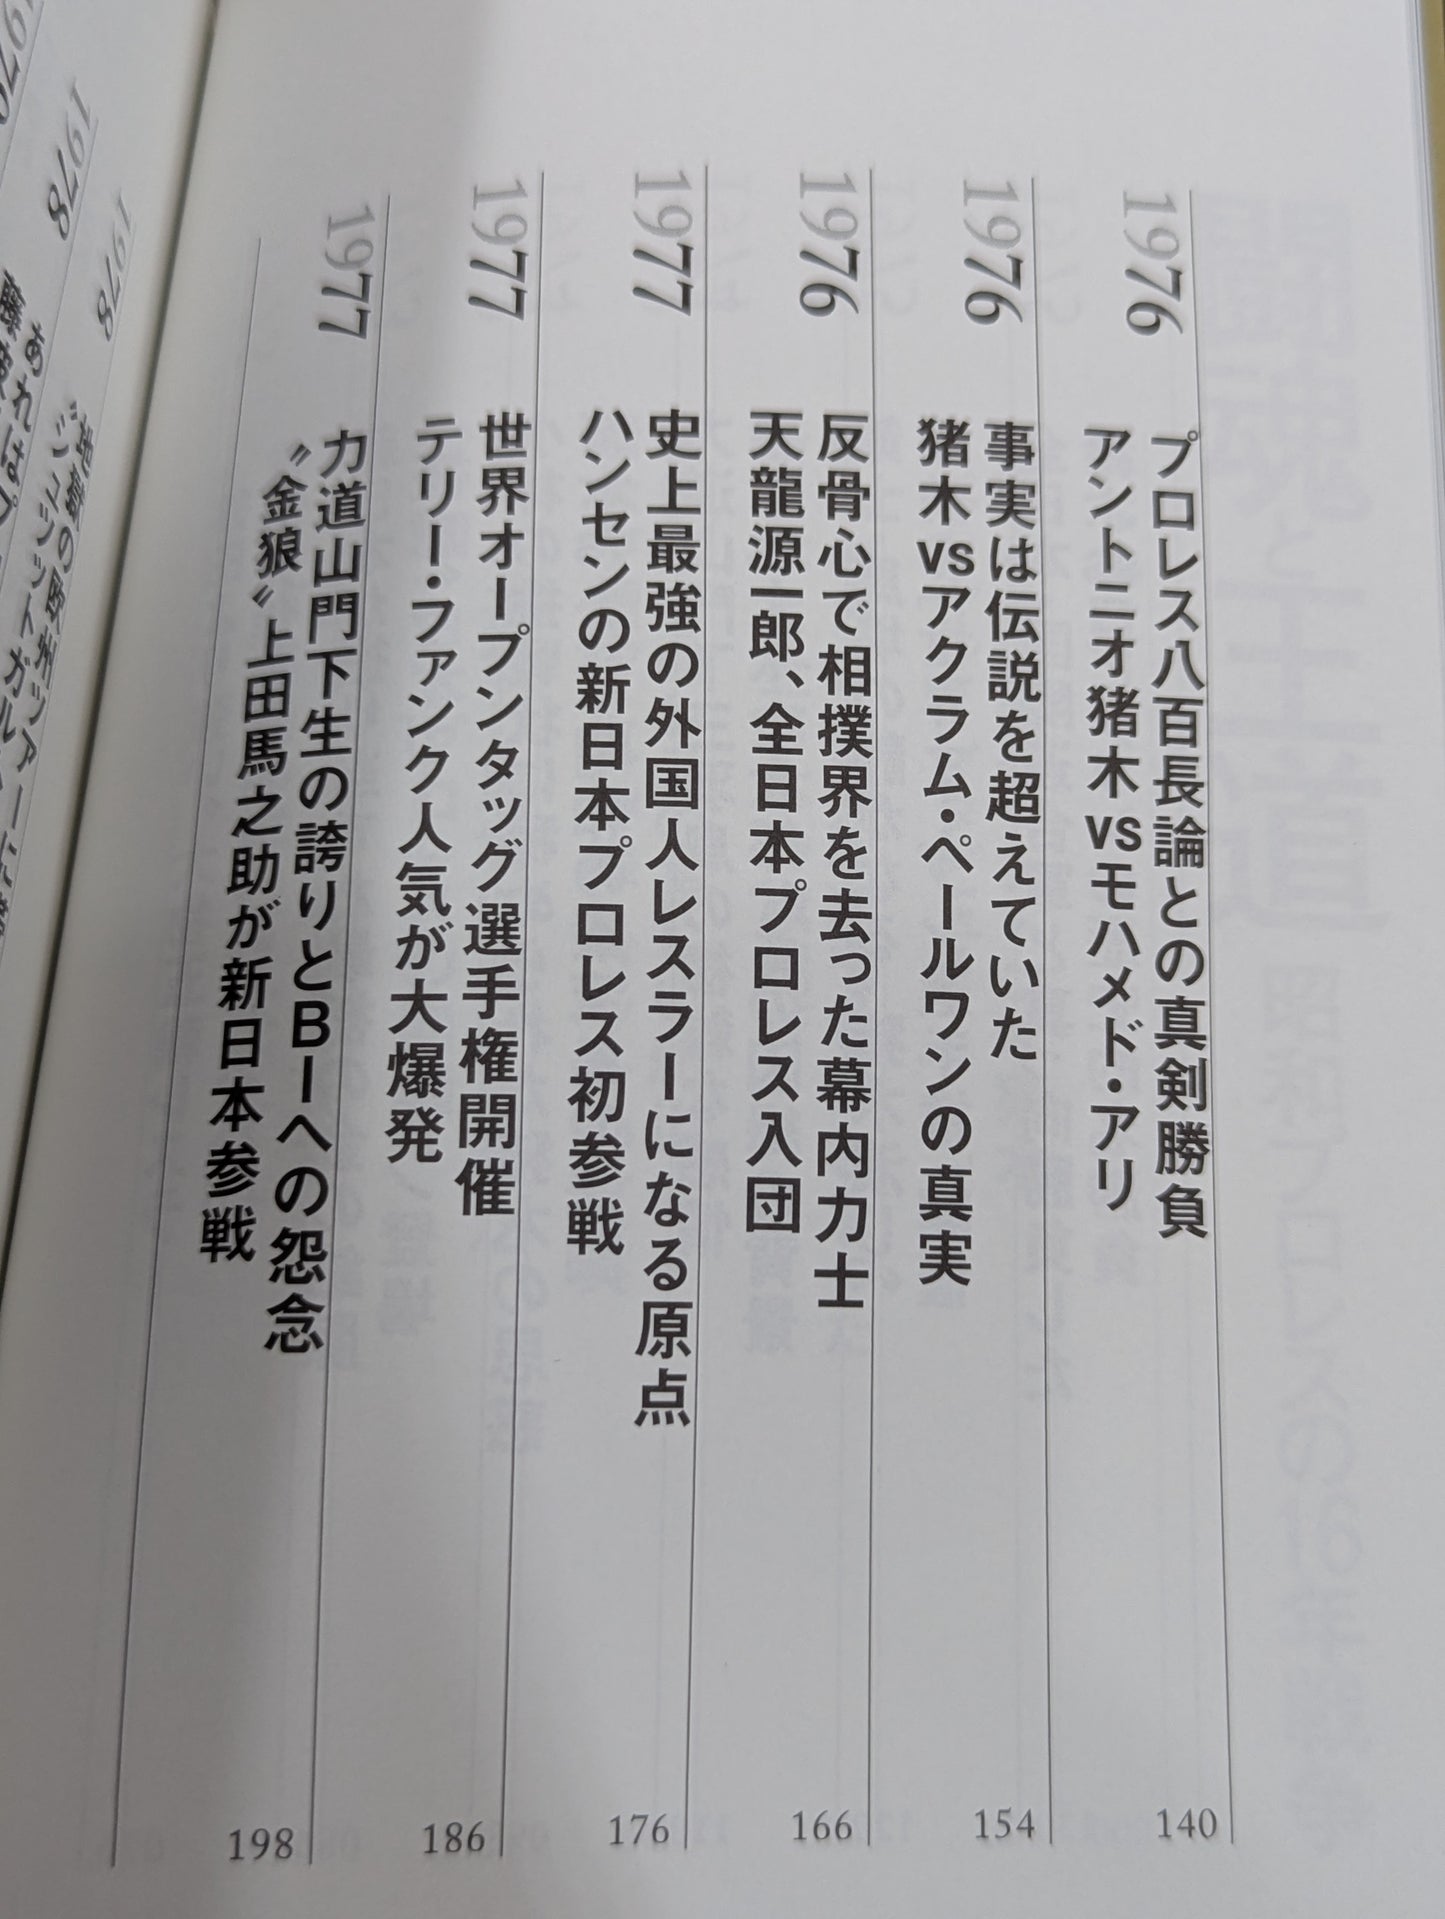 1976
プロレス八百長論との真剣勝負
アントニオ猪木vsモハメド・アリ
140
1976
事実は伝説を超えていた
猪木vsアクラム・ペールワンの真実
154
1976
反骨心で相撲界を去った幕内力士
天龍源一郎、全日本プロレス入団
166
1977
史上最強の外国人レスラーになる原点
ハンセンの新日本プロレス初参戦
176
1977
世界オープンタッグ選手権開催
テリー・ファンク人気が大爆発
186
1977
力道山門下生の誇りとBIへの怨念
〝金狼〟上田馬之助が新日本参戦
198
1978
の欧州ツアーに
1978
ジュニット
あれはプ